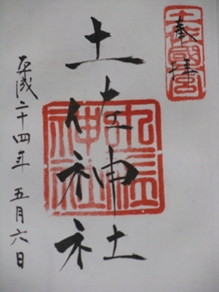 奉拝
土佐神社
土佐神社
平成二十四年 五月六日